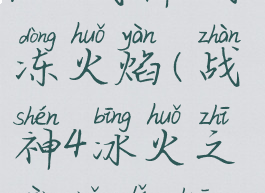 dòng huǒ yàn zhàn
冻火焰(战
shén bīng huǒ zhī
神4冰火之